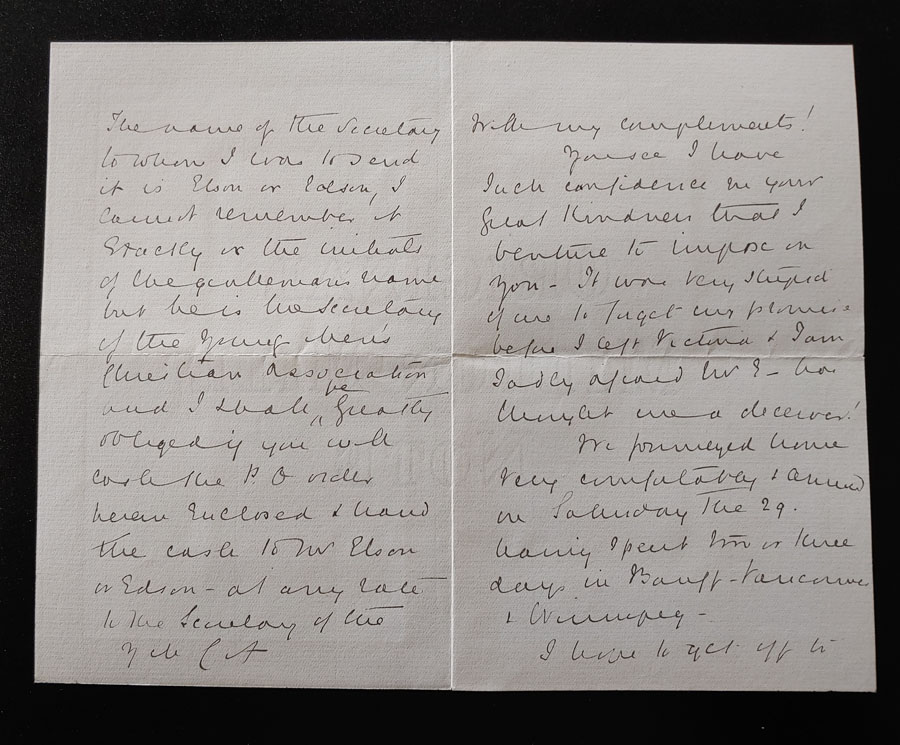 The name of the Secretary
to whom I was to send
it is Elson or Edson, I
cannot remember it
exactly or the initials
of the gentleman's name
but he is the Secretary
of the Young Men's
Christian Association
and I shall be greatly
obliged if you will
cash the P. O order
herein enclosed & hand
the cash to Mr Elson
or Edson - at any rate
to the Secretary of the
Y M C A
With my complements!
You see I have
such confidence in your
great kindness that I
venture to impose on
you - It was very stupid
of me to forget my promise
before I left Victoria & I am
sadly afraid Mr E - has
thought me a deceiver!
We journeyed home
very comfortably & arrived
on Saturday the 29.
having spent two or three
days in Banff - Vancouver
& Winnipeg -
I hope to get off to